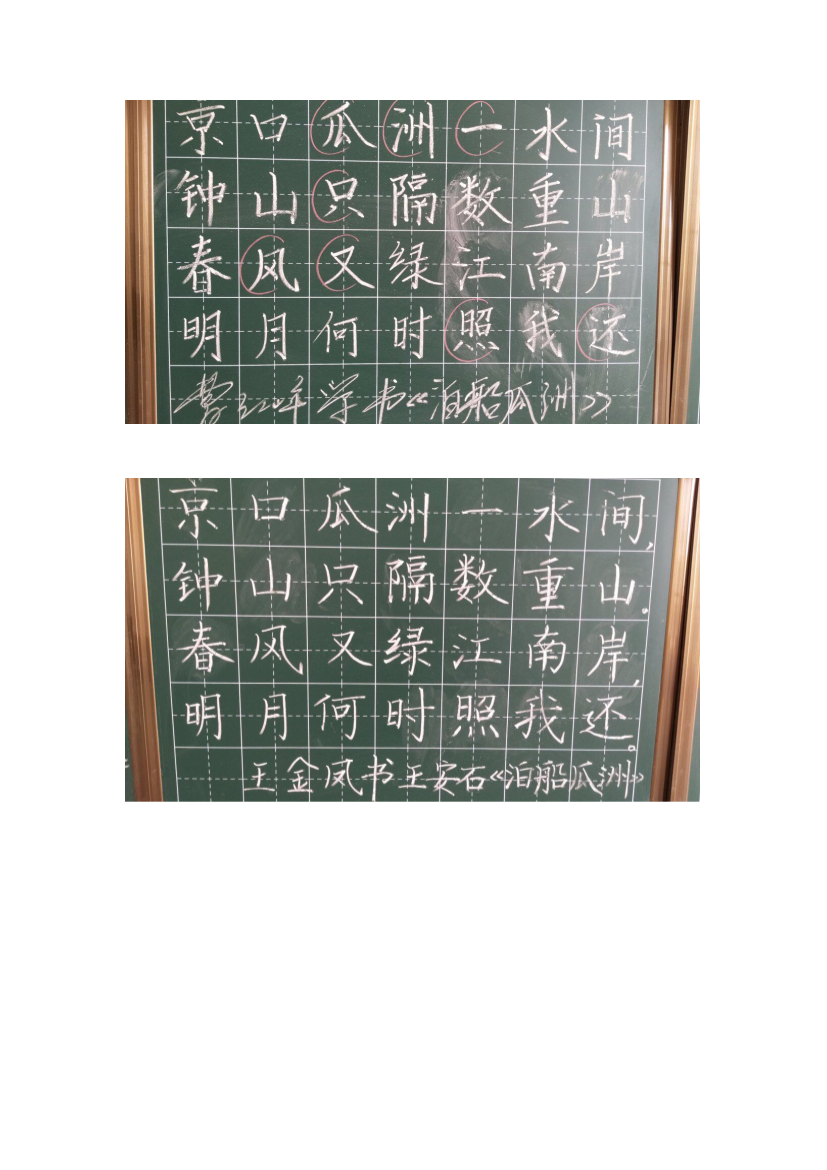 京口瓜洲一水间
钟山只隔数重山
春风又绿江南岸
明月何时照我还
学书《泊船瓜洲》
京口瓜洲一水间,
钟山只隔数重山。
春风又绿江南岸,
明月何时照我还。
王金凤书王安石《泊船瓜洲》